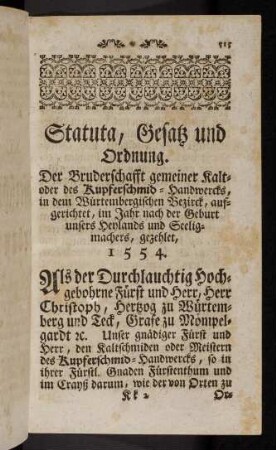 515
Statuta, Gesatz und
Ordnung.
Der Bruderschafft gemeiner Kalt-
oder des Kupferschmid-Handwercks,
in dem Würtembergischen Bezirck, auf-
gerichtet, im Jahr nach der Geburt
unsers Heylands und Seelig-
machers, gezehlet,
1554.
Als der Durchlauchtig Hoch-
gebohrne Fürst und Herr, Herr
Christoph, Hertzog zu Würtem-
berg und Teck, Grafe zu Mömpel-
gardt ꝛc. Unser gnädiger Fürst und
Herr, den Kaltschmiden oder Meistern
des Kupferschmid-Handwercks, so in
ihrer Fürstl. Gnaden Fürstenthum und
im Crayß darum, wie der von Orten zu
Kk 2 Or-